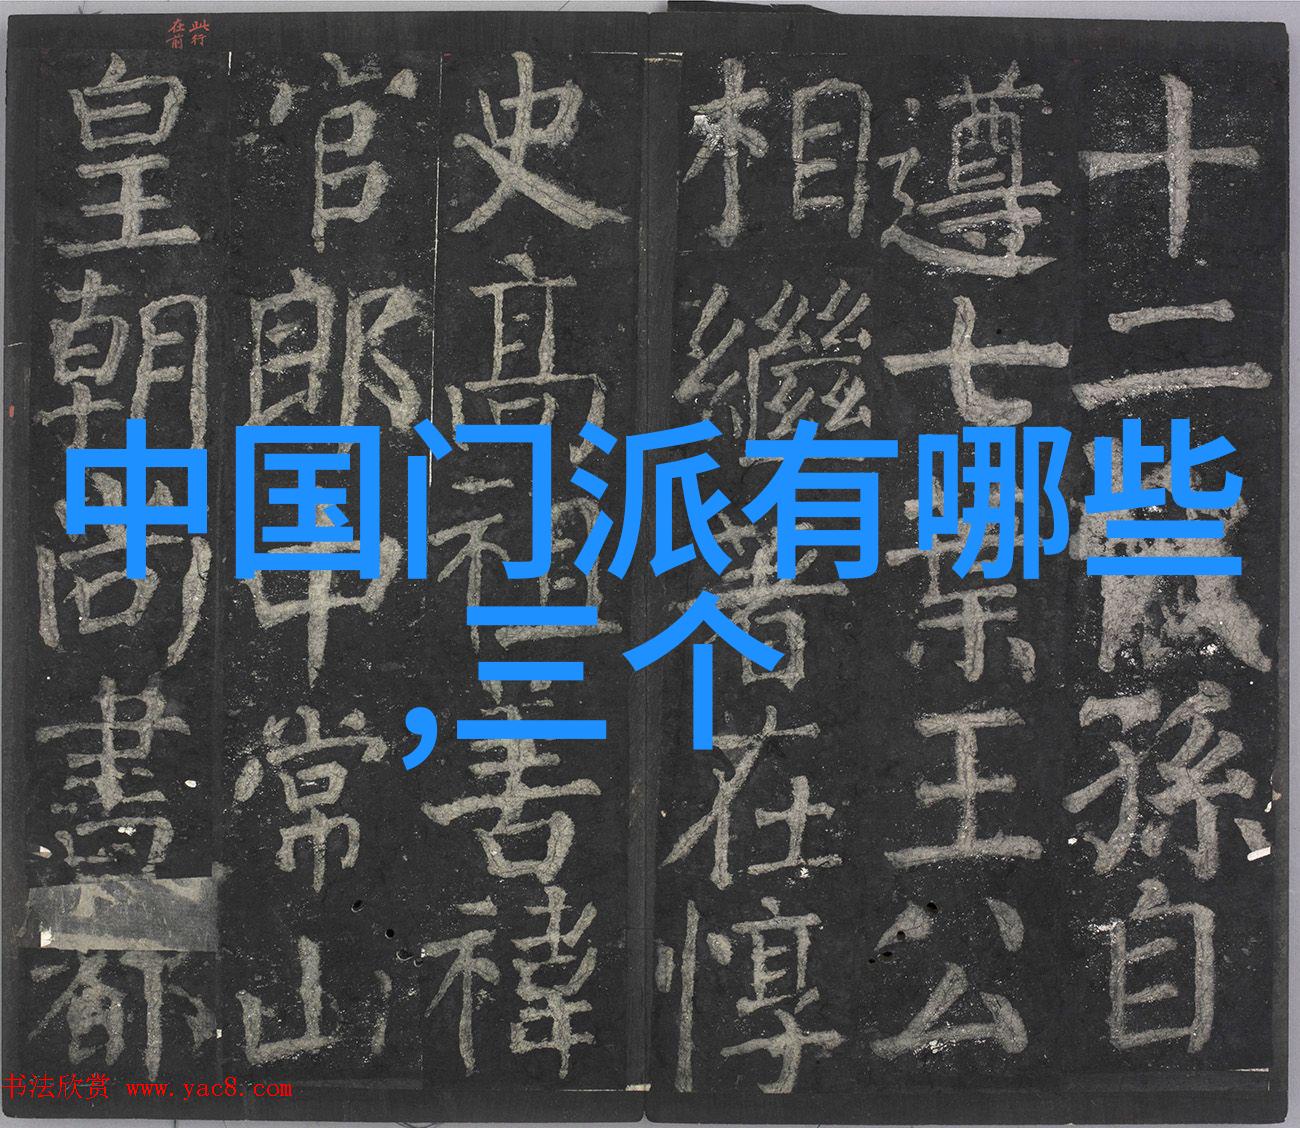 中国门派有哪些
,三个
十二 孫自
遵七葉王公
相繼著在惇
史高祖善禕
官郎中常山
皇朝尚書都
此行
在前
书法欣赏 www.yac8.com